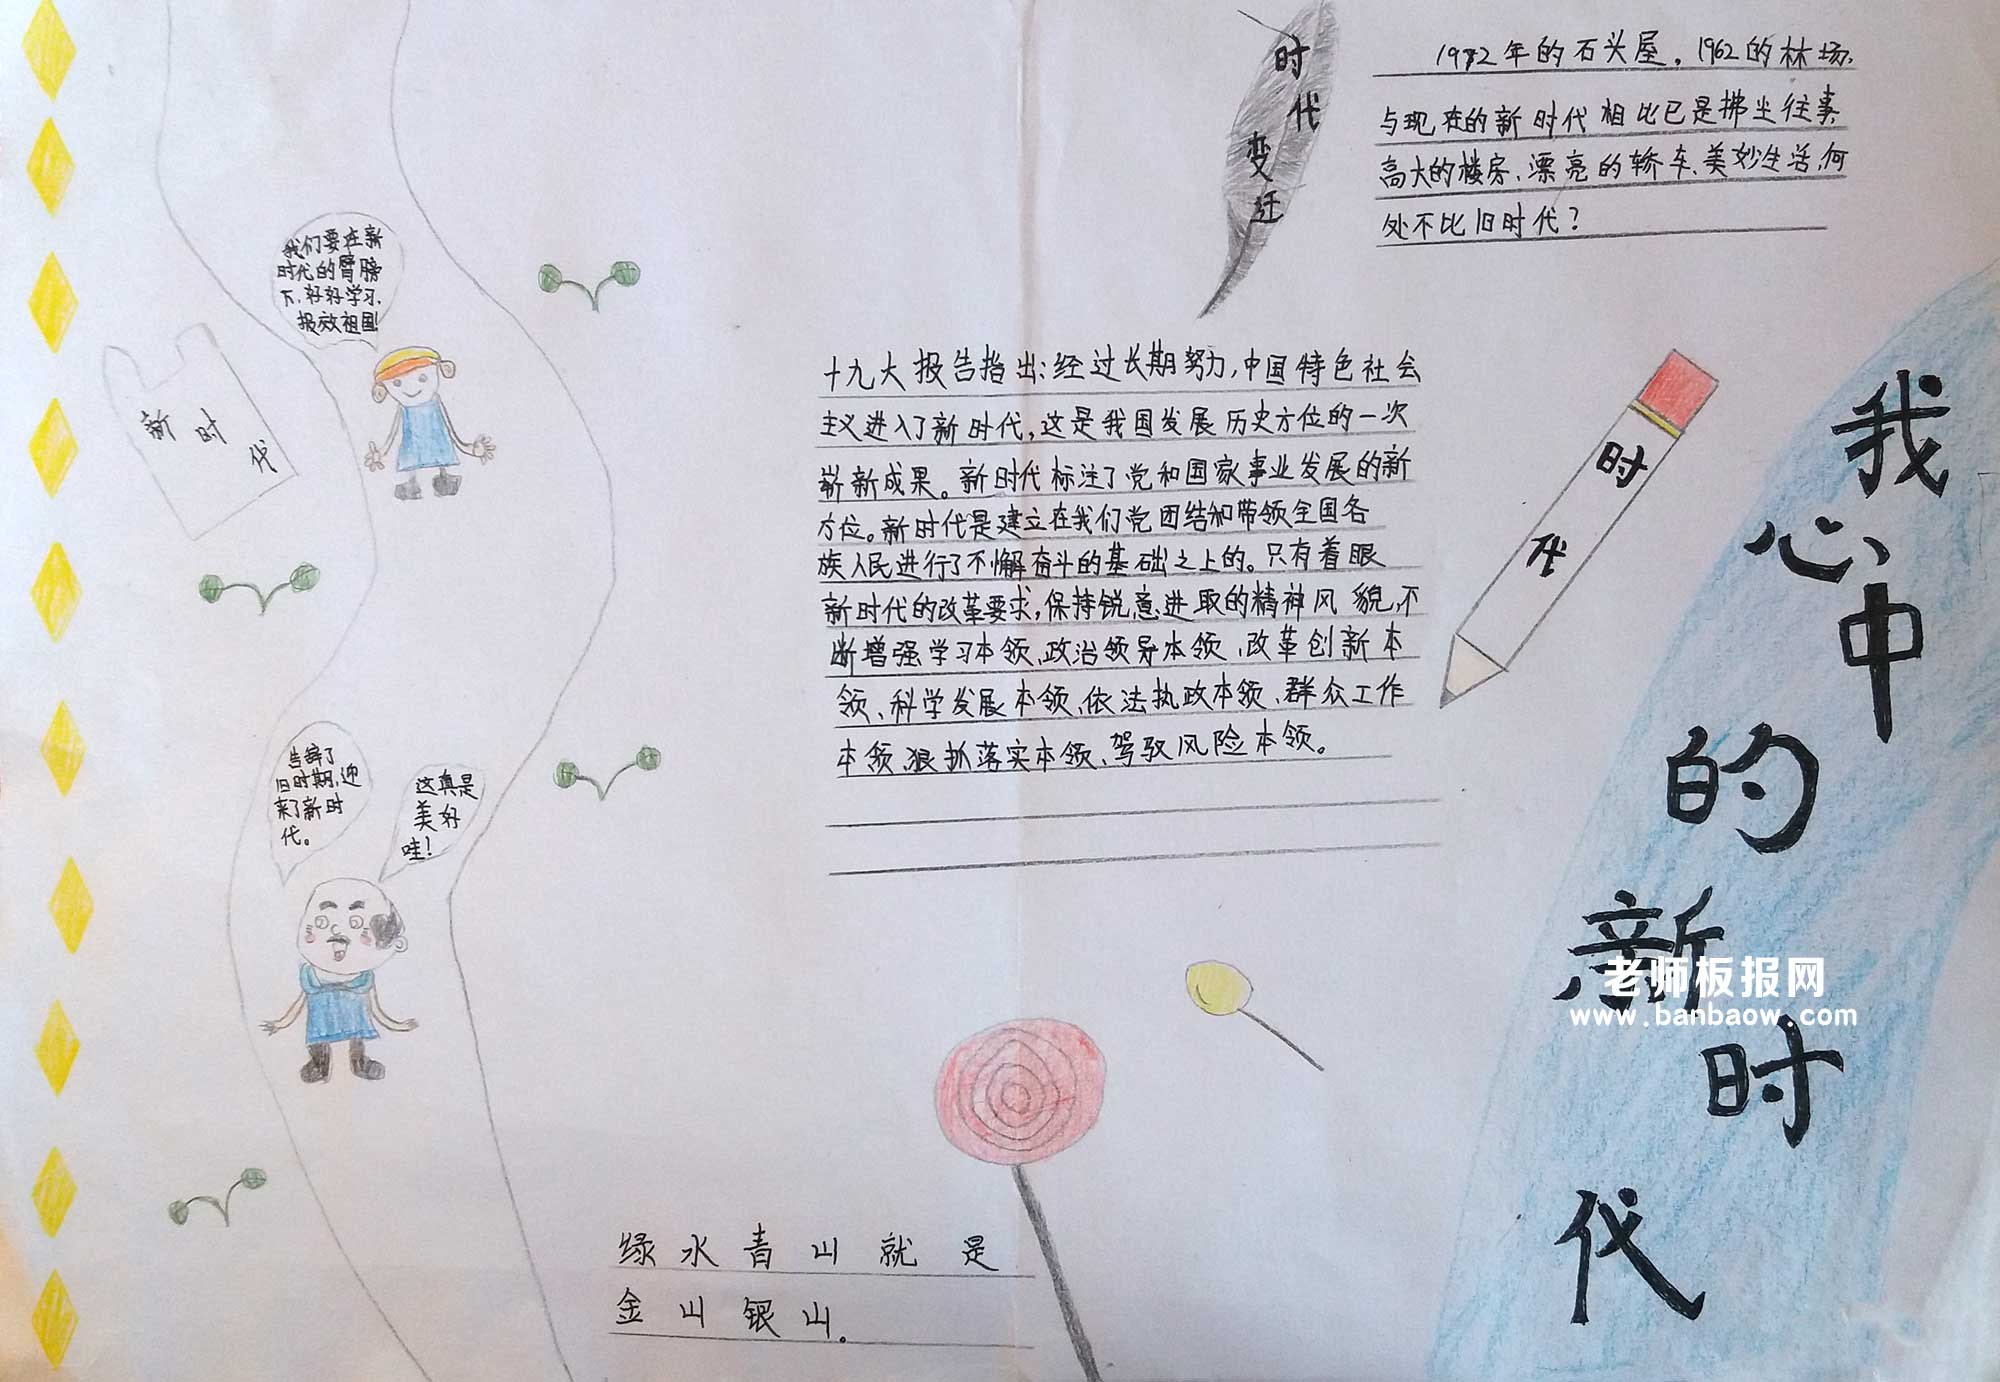 时代变迁
1972年的石头屋。1962的林场,
与现在的新时代相比已是拂尘往事
高大的楼房、漂亮的轿车、美妙生活,何
处不比旧时代?
我们要在新
时代的臂膀
下,好好学习,
报效祖国!
新时代
十九大报告指出:经过长期努力,中国特色社会
主义进入了新时代,这是我国发展历史方位的一次
崭新成果。新时代标注了党和国家事业发展的新
方位。新时代是建立在我们党团结和带领全国各
族人民进行了不懈奋斗的基础之上的。只有着眼
新时代的改革要求,保持锐意进取的精神风貌,不
断增强学习本领、政治领导本领、改革创新本
领、科学发展本领、依法执政本领、群众工作
本领、狠抓落实本领、驾驭风险本领。
时代
我心中的新时代
告辞了
旧时期,迎
来了新时
代。
这真是
美好
哇!
老师板报网
www.banbaow.com
绿水青山就是
金山银山。